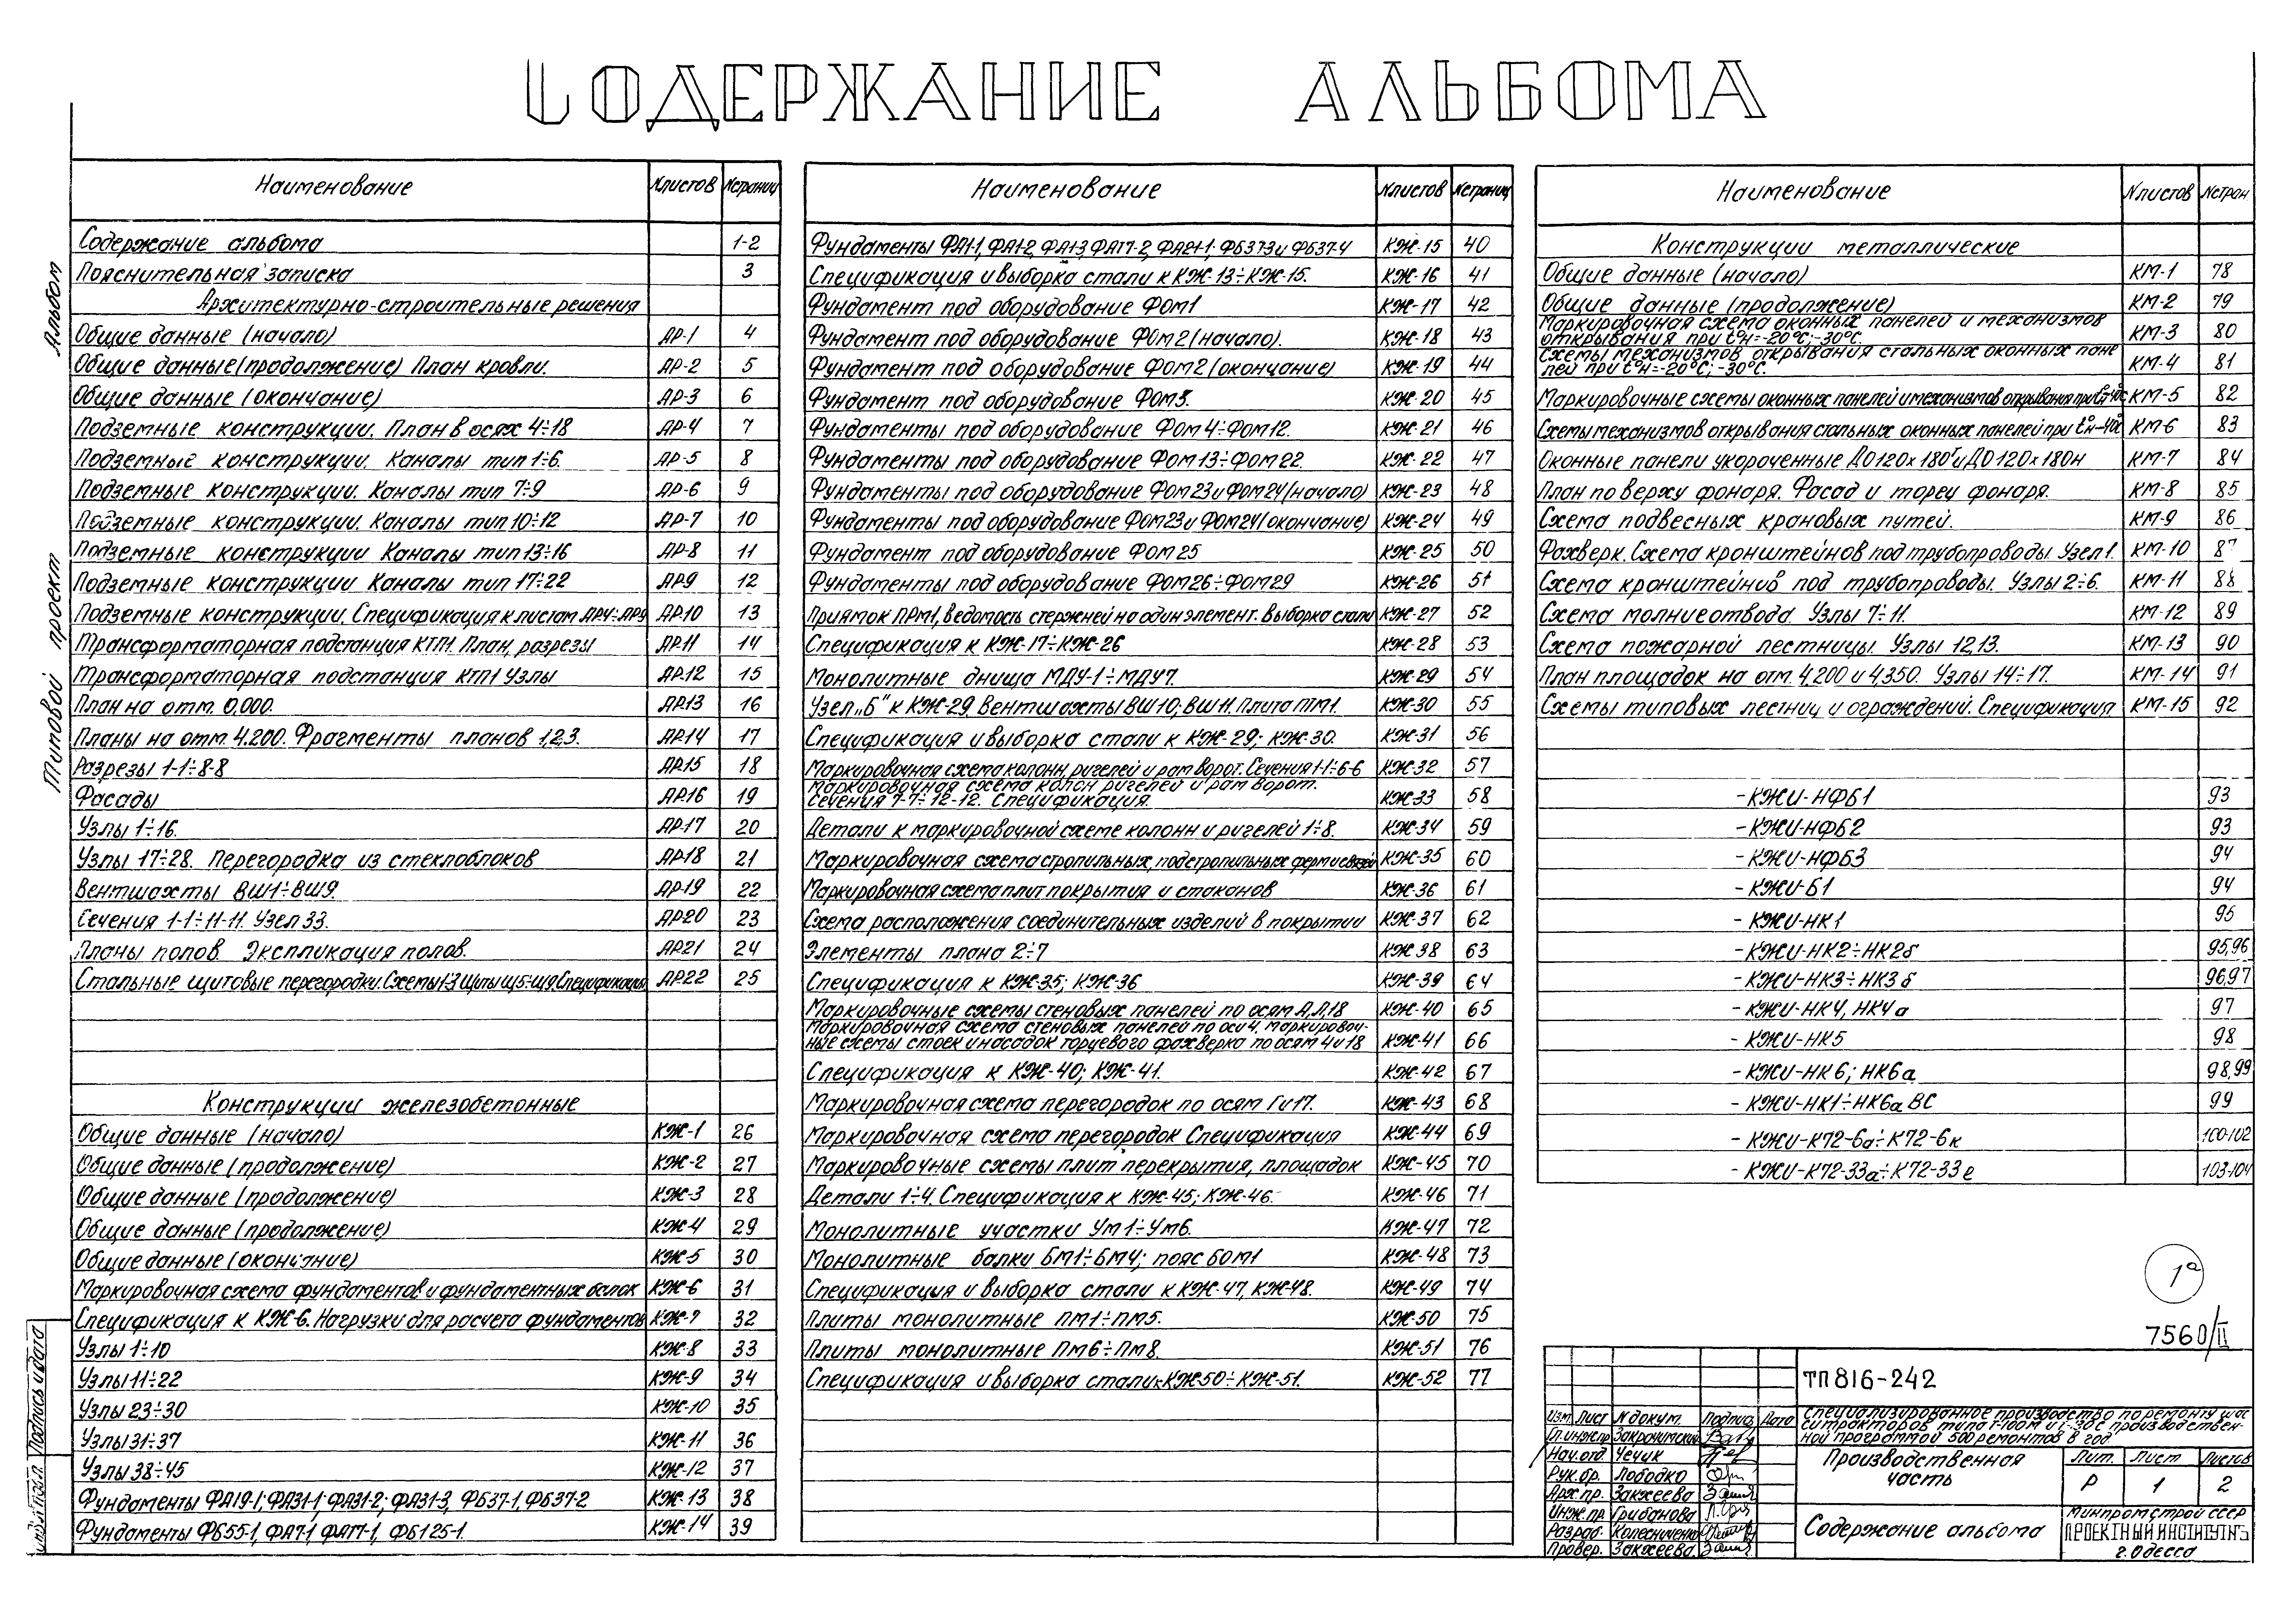 СОДЕРЖАНИЕ АЛЬБОМА
Альбом
Типовой проект
Наименование Nлистов Nстраниц
Содержание альбома 1-2
Пояснительная записка 3
Архитектурно-строительные решения
Общие данные (начало) АР-1 4
Общие данные (продолжение) План кровли. АР-2 5
Общие данные (окончание) АР-3 6
Подземные конструкции. План в осях 4÷18 АР-4 7
Подземные конструкции. Каналы тип 1÷6. АР-5 8
Подземные конструкции. Каналы тип 7÷9 АР-6 9
Подземные конструкции. Каналы тип 10÷12 АР-7 10
Подземные конструкции Каналы тип 13÷16 АР-8 11
Подземные конструкции Каналы тип 17÷22 АР-9 12
Подземные конструкции. Спецификация к листам АР4÷АР9 АР.10 13
Трансформаторная подстанция КТП1. План, разрезы АР.11 14
Трансформаторная подстанция КТП1 Узлы АР.12 15
План на отм. 0,000. АР.13 16
Планы на отм. 4.200. Фрагменты планов 1,2,3. АР.14 17
Разрезы 1-1÷8-8 АР.15 18
Фасады АР.16 19
Узлы 1÷16. АР-17 20
Узлы 17÷28. Перегородка из стеклоблоков АР-18 21
Вентшахты ВШ1÷ВШ9. АР-19 22
Сечения 1-1÷11-11. Узел 33. АР-20 23
Планы полов. Экспликация полов. АР-21 24
Стальные щитовые перегородки. Схемы 1÷3 Щиты Щ5÷Щ9 Спецификация АР-22 25
Конструкции железобетонные
Общие данные (начало) КЖ-1 26
Общие данные (продолжение) КЖ-2 27
Общие данные (продолжение) КЖ-3 28
Общие данные (продолжение) КЖ-4 29
Общие данные (окончание) КЖ-5 30
Маркировочная схема фундаментов и фундаментных балок КЖ-6 31
Спецификация к КЖ-6. Нагрузки для расчета фундаментов КЖ-7 32
Узлы 1÷10 КЖ-8 33
Узлы 11÷22 КЖ-9 34
Узлы 23÷30 КЖ-10 35
Узлы 31÷37 КЖ-11 36
Узлы 38÷45 КЖ-12 37
Фундаменты ФА19-1; ФА31-1; ФА31-2; ФА31-3, ФБ37-1, ФБ37-2 КЖ-13 38
Фундаменты ФБ55-1, ФА7-1 ФАТ7-1, ФБ125-1. КЖ-14 39
Наименование Nлистов Nстраниц
Фундаменты ФА1-1, ФА1-2, ФА1-3, ФАТ7-2, ФА21-1; ФБ37-3 и ФБ37-4 КЖ-15 40
Спецификация и выборка стали к КЖ-13÷КЖ-15. КЖ-16 41
Фундамент под оборудование ФОМ1 КЖ-17 42
Фундамент под оборудование ФОМ2 (начало). КЖ-18 43
Фундамент под оборудование ФОМ2 (окончание) КЖ-19 44
Фундамент под оборудование ФОМ3. КЖ-20 45
Фундаменты под оборудование ФОМ4÷ФОМ12. КЖ-21 46
Фундаменты под оборудование ФОМ13÷ФОМ22. КЖ-22 47
Фундаменты под оборудование ФОМ23 и ФОМ24 (начало) КЖ-23 48
Фундаменты под оборудование ФОМ23 и ФОМ24 (окончание) КЖ-24 49
Фундамент под оборудование ФОМ25 КЖ-25 50
Фундаменты под оборудование ФОМ26÷ФОМ29 КЖ-26 51
Приямок ПРМ1, ведомость стержней на один элемент. Выборка стали КЖ-27 52
Спецификация к КЖ-17÷КЖ-26 КЖ-28 53
Монолитные днища МДУ-1÷МДУ7. КЖ-29 54
Узел „Б" к КЖ-29. Вентшахты ВШ10; ВШ11. Плита ПТМ1. КЖ-30 55
Спецификация и выборка стали к КЖ-29; КЖ-30. КЖ-31 56
Маркировочная схема колонн, ригелей и рам ворот. Сечения 1-1÷6-6 КЖ-32 57
Маркировочная схема колон ригелей и рам ворот.
Сечения 7-7÷12-12. Спецификация. КЖ-33 58
Детали к маркировочной схеме колонн и ригелей 1÷8. КЖ-34 59
Маркировочная схема стропильных, подстропильных ферм и связей КЖ-35 60
Маркировочная схема плит покрытия и стаканов КЖ-36 61
Схема расположения соединительных изделий в покрытии КЖ-37 62
Элементы плана 2÷7 КЖ-38 63
Спецификация к КЖ-35; КЖ-36 КЖ-39 64
Маркировочные схемы стеновых панелей по осям А,Л,18 КЖ-40 65
Маркировочная схема стеновых панелей по оси 4. Маркировоч-
ные схемы стоек и насадок торцевого фахверка по осям 4 и 18 КЖ-41 66
Спецификация к КЖ-40; КЖ-41. КЖ-42 67
Маркировочная схема перегородок по осям Г и 17. КЖ-43 68
Маркировочная схема перегородок Спецификация КЖ-44 69
Маркировочные схемы плит перекрытия, площадок КЖ-45 70
Детали 1÷4. Спецификация к КЖ-45; КЖ-46. КЖ-46 71
Монолитные участки Ум1÷Ум6. КЖ-47 72
Монолитные балки БМ1÷БМ4; пояс БОМ1 КЖ-48 73
Спецификация и выборка стали к КЖ-47, КЖ-48. КЖ-49 74
Плиты монолитные ПМ1÷ПМ5. КЖ-50 75
Плиты монолитные Пм6÷Пм8. КЖ-51 76
Спецификация и выборка стали к КЖ-50÷КЖ-51. КЖ-52 77
Наименование Nлистов Nстран
Конструкции металлические
Общие данные (начало) КМ-1 78
Общие данные (продолжение) КМ-2 79
Маркировочная схема оконных панелей и механизмов
открывания при t°н=-20°С;-30°С. КМ-3 80
Схемы механизмов открывания стальных оконных пане
лей при t°н=-20°С; -30°С. КМ-4 81
Маркировочные схемы оконных панелей и механизмов открывания при t°н-40С КМ-5 82
Схемы механизмов открывания стальных оконных панелей при t°н-40С КМ-6 83
Оконные панели укороченные ДО120х180 и ДО 120х180н КМ-7 84
План по верху фонаря. Фасад и торец фонаря. КМ-8 85
Схема подвесных крановых путей. КМ-9 86
Фахверк. Схема кронштейнов под трубопроводы. Узел 1. КМ-10 87
Схема кронштейнов под трубопроводы. Узлы 2÷6. КМ-11 88
Схема молниеотвода. Узлы 7÷11. КМ-12 89
Схема пожарной лестницы. Узлы 12,13. КМ-13 90
План площадок на отм. 4.200 и 4,350. Узлы 14÷17. КМ-14 91
Схемы типовых лестниц и ограждений. Спецификация КМ-15 92
-КЖИ-НФБ1 93
-КЖИ-НФБ2 93
-КЖИ-НФБ3 94
-КЖИ-Б1 94
-КЖИ-НК1 95
-КЖИ-НК2÷НК2б 95,96
-КЖИ-НК3÷НК3б 96,97
-КЖИ-НК4, НК4а 97
-КЖИ-НК5 98
-КЖИ-НК6; НК6а 98,99
-КЖИ-НК1÷НК6а ВС 99
-КЖИ-К72-6а÷К72-6к 100-102
-КЖИ-К72-33а÷К72-33е 103-104
1а
7560/II
ТП 816-242
Специализированное производство по ремонту шас
си тракторов типа Т-100М и Т-130 с производствен-
ной программой 500 ремонтов в год
Изм. Лист N докум. Подпись Дата
Гл. инж.пр
Нач. отд. Чечик
Рук. бр. Лободко
Арх. пр. Закхеева
Инж. пр. Грибанова
Разраб. Колесниченко
Провер. Закхеева
Производственная
часть
Лит. Лист Листов
Р 1 2
Содержание альбома
Минпромстрой СССР
ПРОЕКТНЫЙ ИНСТИТУТ №3
г. Одесса
Подпись и дата
Инв.N подл.